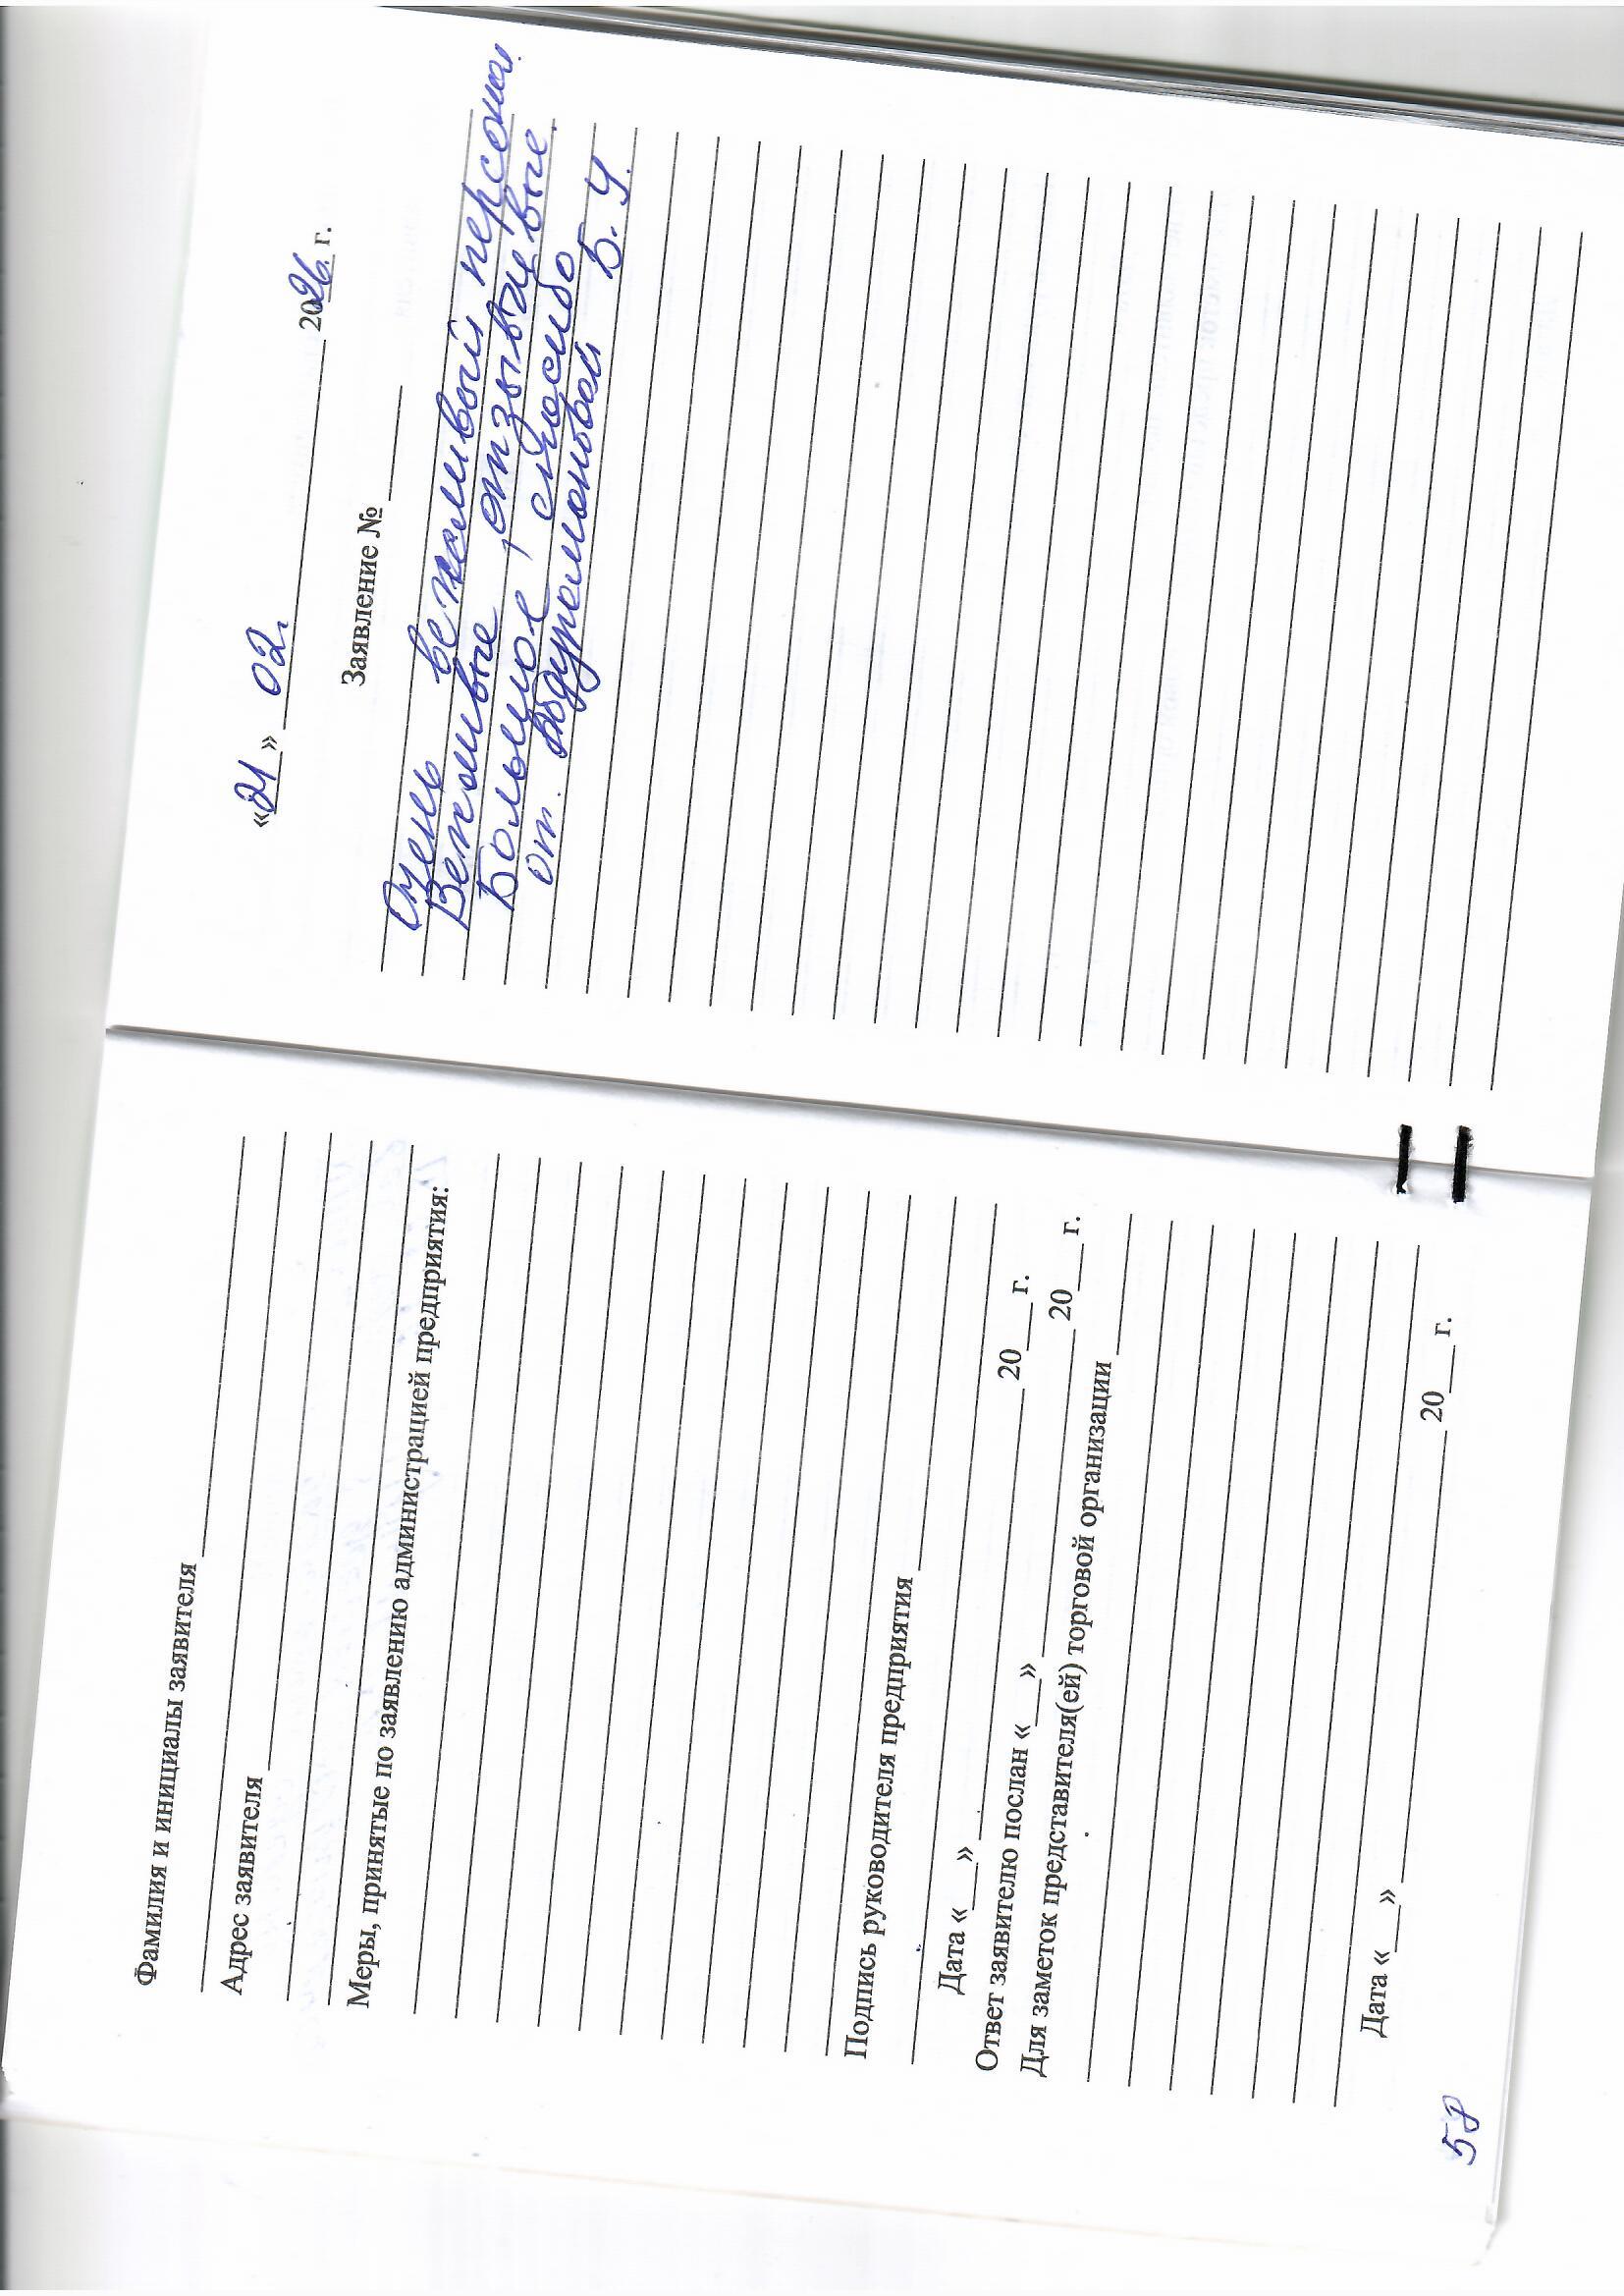 Фамилия и инициалы заявителя
Адрес заявителя
Меры, принятые по заявлению администрацией предприятия:
Подпись руководителя предприятия
Дата «___» ______ 20___ г.
Ответ заявителю послан «___» ______ 20___ г.
Для заметок представителя(ей) торговой организации
Дата «___» ______ 20___ г.
58
«21» 02. 2026 г.
Заявление № ______
Очень вежливый персонал.
Вежливые, отзывчивые.
Большое спасибо
от. Б. Ч.